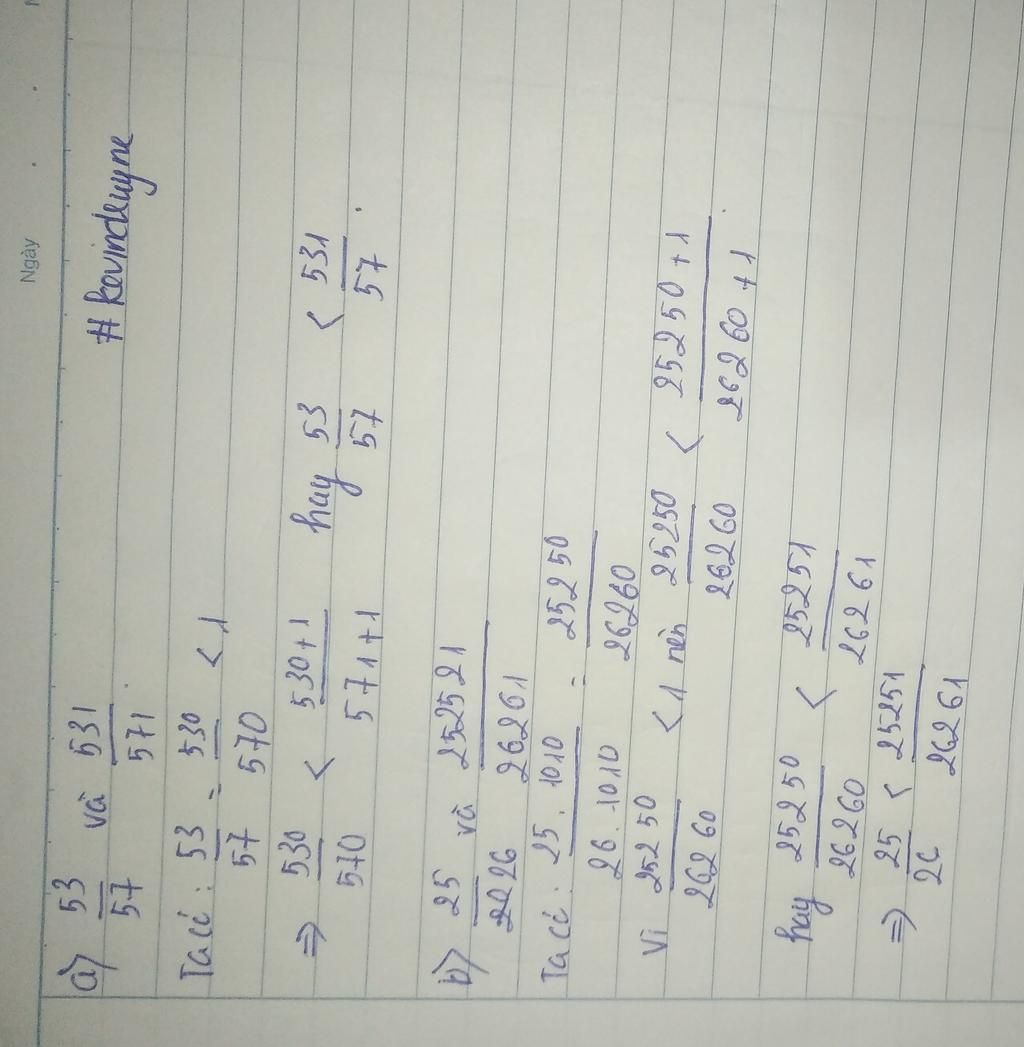 Ngày
#kevindeuyne
a) 53/57 và 531/571.
Ta có: 53/57 = 530/570 < 1
⇒ 530/570 < 530+1/571+1 hay 53/57 < 531/57.
b) 25/26 và 252521/26261
Ta có: 25.1010/26.1010 = 25250/26260
Vì 25250/26260 < 1 nên 25250/26260 < 25250+1/26260+1.
hay 25250/26260 < 25251/26261
⇒ 25/26 < 25251/26261